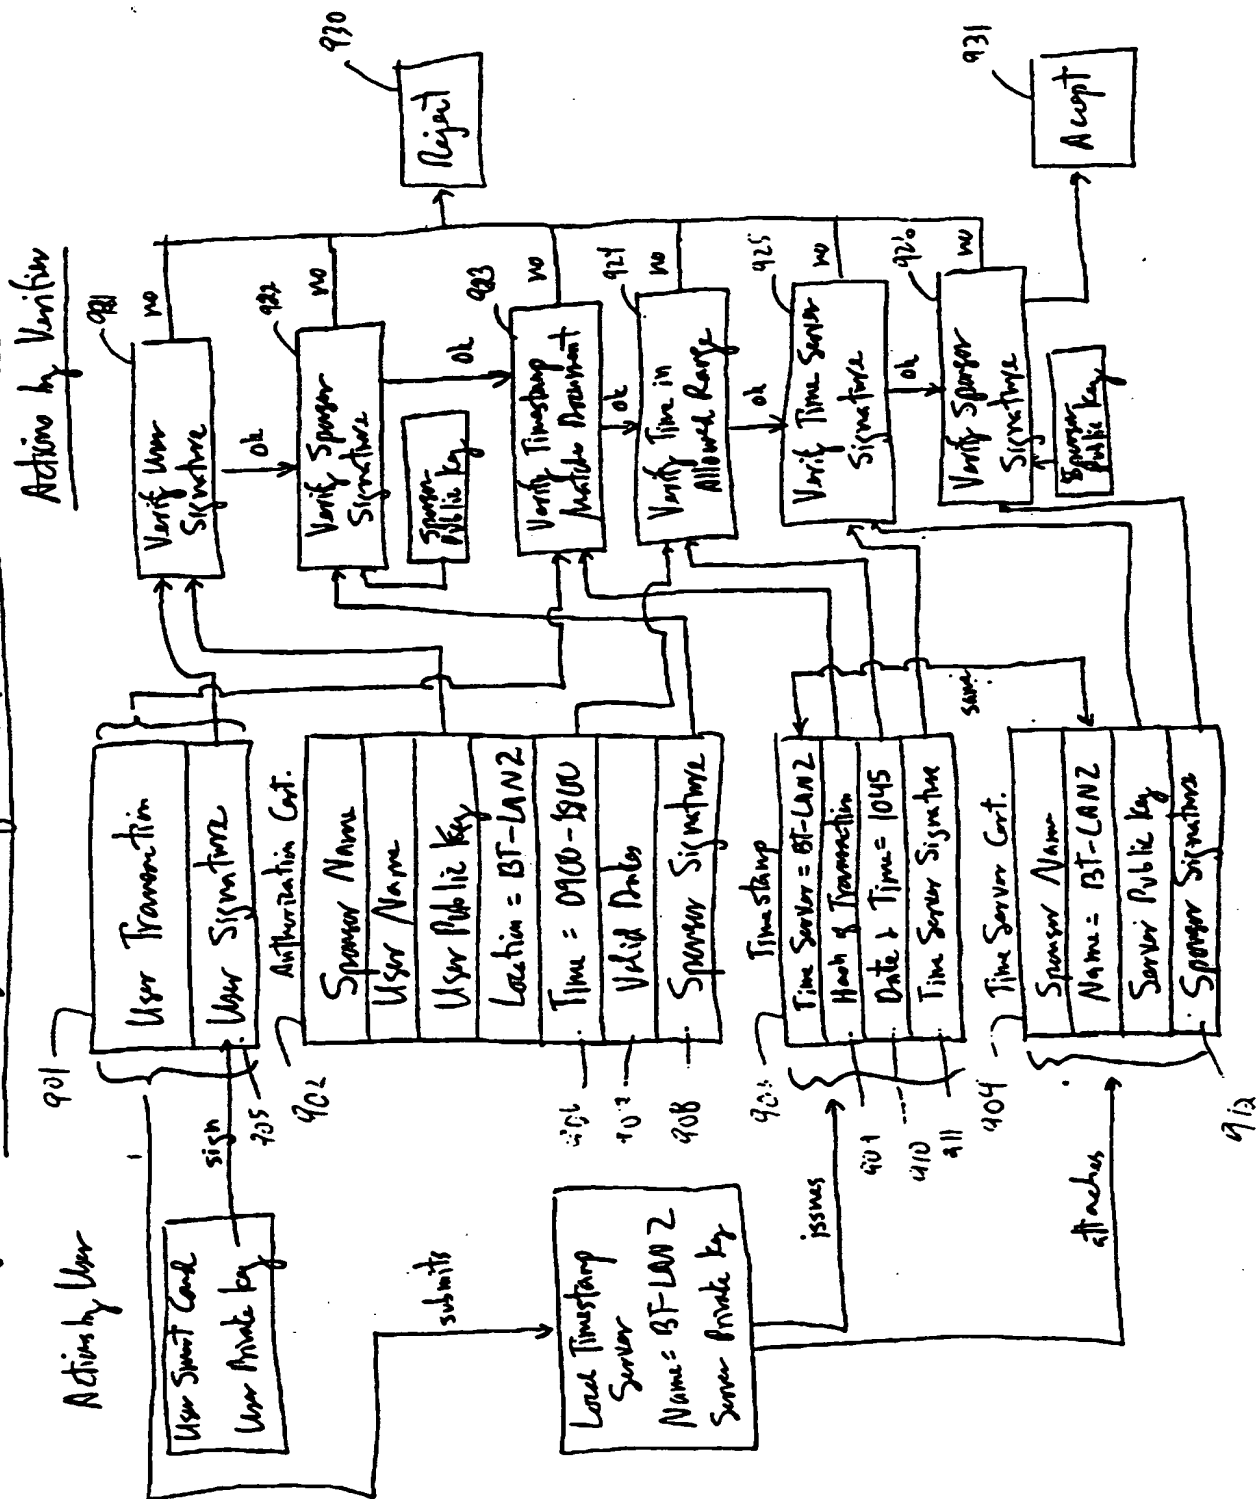 Actions by User
Actions by Verifier
User Smart Card
User Private Key
sign
submits
Local Timestamp
Server
Name = BT-LAN2
Server Private Key
issues
attaches
901
User Transaction
User Signature
902
Authorization Cert.
Sponsor Name
User Name
User Public Key
Location = BT-LAN2
Time = 0900-1800
Valid Dates
Sponsor Signature
908
Timestamp
Time Server = BT-LAN2
Hash of Transaction
Date & Time = 1045
Time Server Signature
910
911
same
904
Time Server Cert.
Sponsor Name
Name = BT-LAN2
Server Public Key
Sponsor Signature
912
921
Verify User
Signature
no
ok
922
Verify Sponsor
Signature
no
ok
Sponsor
Public Key
923
Verify Timestamp
Matches Document
no
ok
924
Verify Time in
Allowed Range
no
ok
925
Verify Time Server
Signature
no
ok
926
Verify Sponsor
Signature
no
Sponsor
Public Key
930
Reject
931
Accept